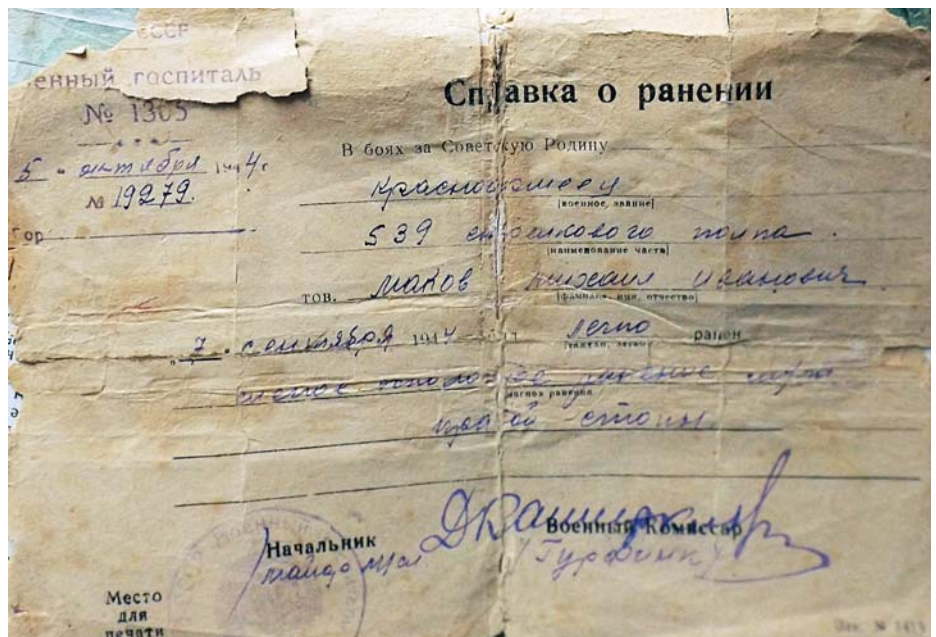 СССР
енный госпиталь
№ 1305
5 " октября 1944 г
№ 19279.
Гор
Справка о ранении
В боях за Советскую Родину
Красноармеец
[военное звание]
539 стрелкового полка.
[наименование части]
тов. Маков Михаил Иванович
[фамилия, имя, отчество]
„ 7 " сентября 1944 легко ранен
[тяжело, легко]
слепое осколочное ранение
диагноз ранения
правой стопы
Начальник
Военный Комиссар
майор м/сл
Место
для
печати